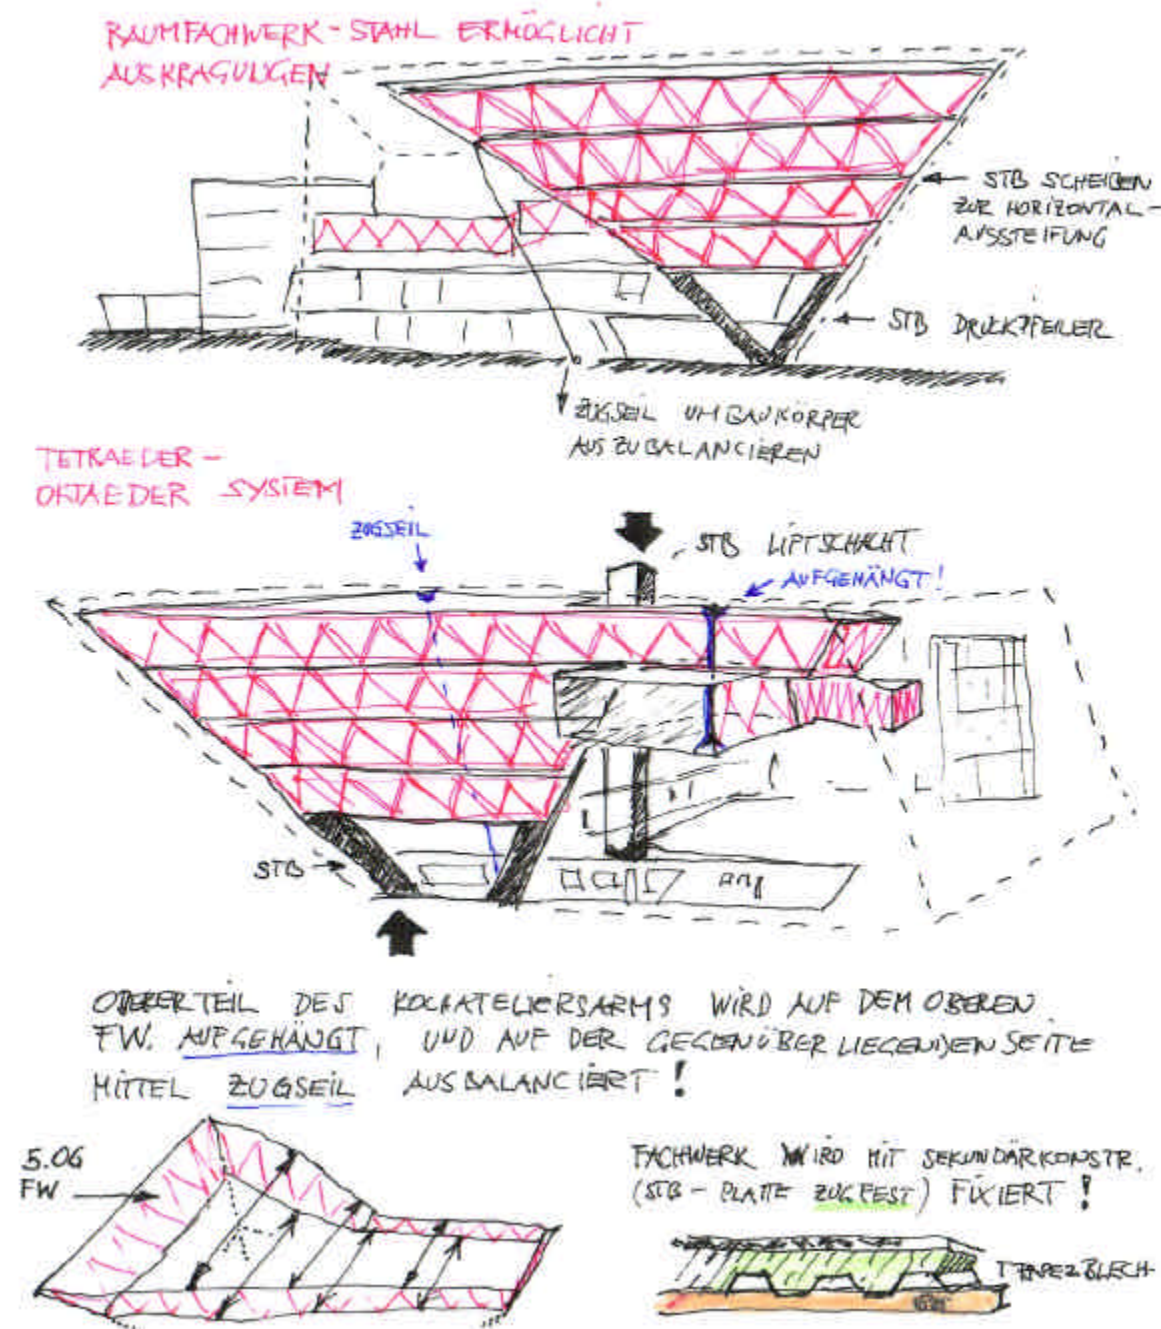 RAUMFACHWERK - STAHL ERMÖGLICHT
AUSKRAGUNGEN
STB SCHEIBEN
ZUR HORIZONTAL -
AUSSTEIFUNG
STB DRUCKPFEILER
ZUGSEIL UM BAUKÖRPER
AUSZUBALANCIEREN
TETRAEDER -
OKTAEDER SYSTEM
ZUGSEIL
STB LIFTSCHACHT
AUFGEHÄNGT!
STB
OBERER TEIL DES KOCHATELIERSARMS WIRD AUF DEM OBEREN
FW. AUFGEHÄNGT, UND AUF DER GEGENÜBERLIEGENDEN SEITE
MITTEL ZUGSEIL AUSBALANCIERT!
5.OG
FW
FACHWERK WIRD MIT SEKUNDÄRKONSTR.
(STB - PLATTE ZUGFEST) FIXIERT!
TRAPEZBLECH